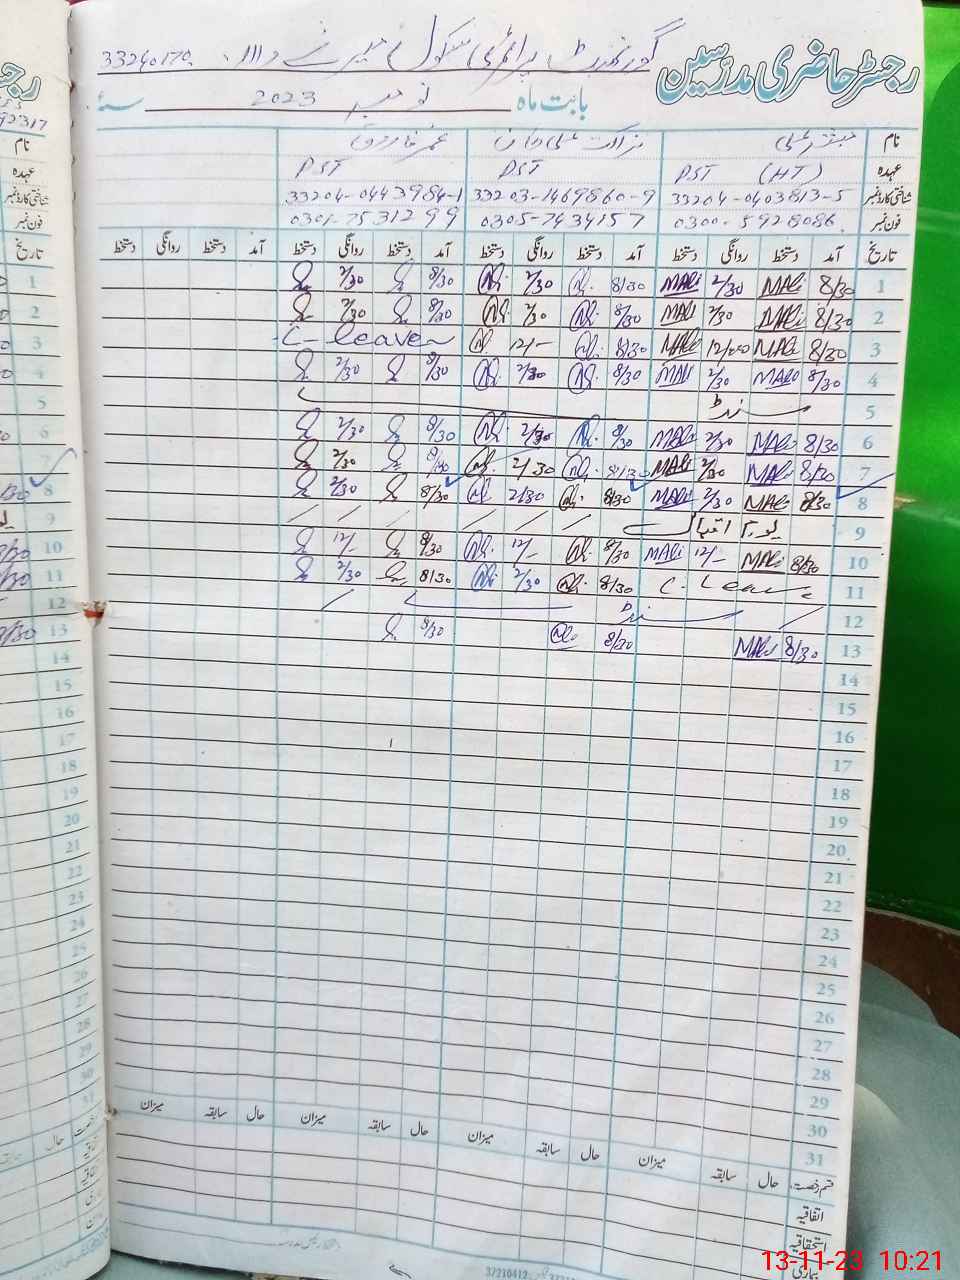 رجسٹر حاضری مدرسین گورنمنٹ پرائمری سکول 33240170
بابت ماہ نومبر 2023 سنۂ
نام مبشر علی نزاکت علی خان عمر فاروق
عہدہ PST (HT) PST PST
شناختی کارڈ نمبر 33204-0403813-5 33203-1469860-9 33204-0443984-1
فون نمبر 0300-5928086 0305-7434157 0301-7531299
تاریخ آمد دستخط روانگی دستخط آمد دستخط روانگی دستخط آمد دستخط روانگی دستخط آمد دستخط روانگی دستخط
1 8/30 MAli 2/30 MAli 8/30 2/30 8/30 2/30
2 8/30 MAli 2/30 MAli 8/30 2/30 8/30 2/30
3 8/30 MAli 12/00 MAli 8/30 12/- C-leave
4 8/30 MAli 2/30 MAli 8/30 2/30 8/30 2/30
5 سنڈے
6 8/30 MAli 2/30 MAli 8/30 2/30 8/30 2/30
7 8/30 MAli 2/30 MAli 8/30 2/30 8/30 2/30
8 8/30 MAli 2/30 MAli 8/30 2/30 8/30 2/30
9 یوم اقبال
10 8/30 MAli 12/- MAli 8/30 12/- 8/30 12/-
11 C-Leave 8/30 2/30 8/30 2/30
12 سنڈے
13 8/30 MAli 8/30 8/30
14
15
16
17
18
19
20
21
22
23
24
25
26
27
28
29
30
31
قسم رخصت حال سابقہ میزان حال سابقہ میزان حال سابقہ میزان حال سابقہ میزان
اتفاقیہ
استحقاقیہ
بیماری
13-11-23 10:21